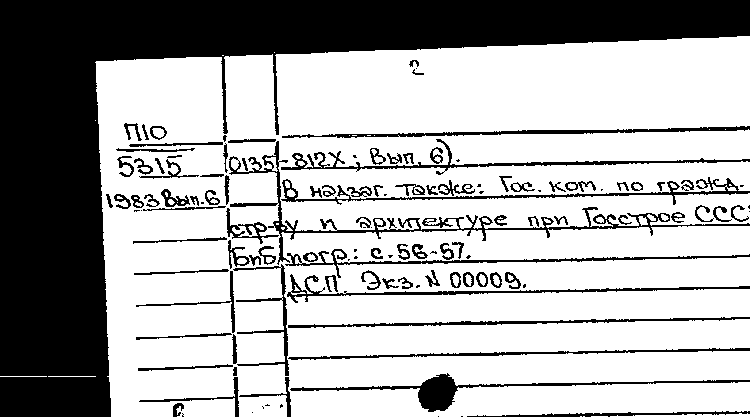 2
П10
5315 0135-812X; Вып. 6).
1983 Вып.6 В надзаг. также: Гос. ком. по гражд.
стр-ву и архитектуре при Госстрое СССР
Библиогр.: с. 56-57.
ДСП. Экз. N 00009.